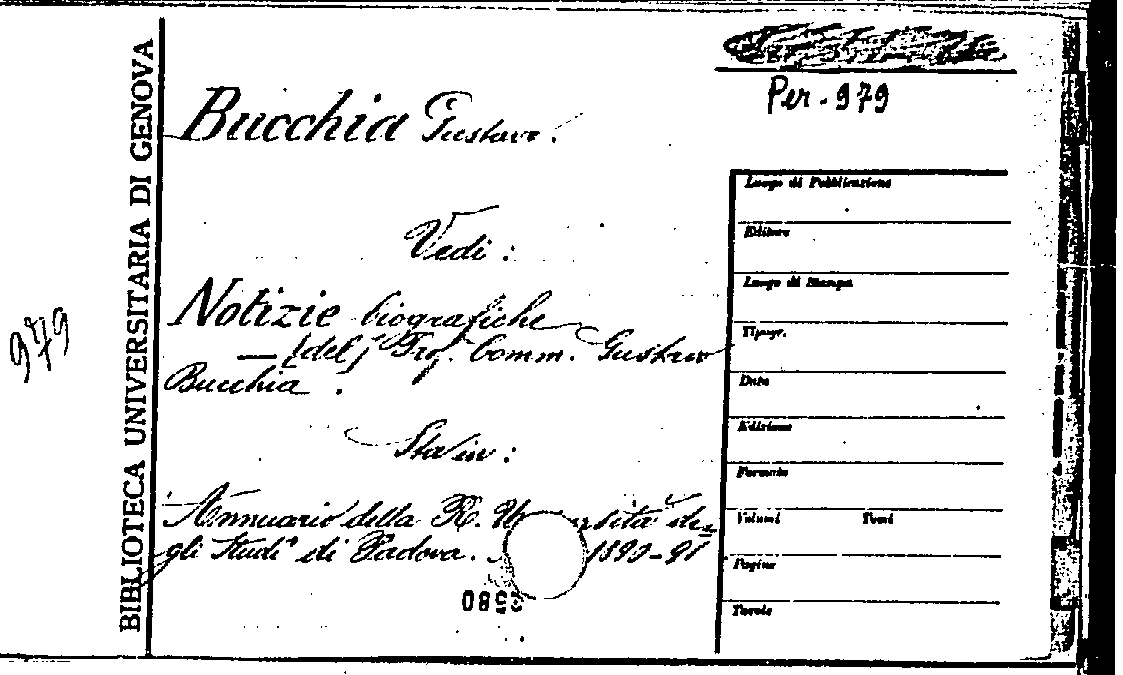 BIBLIOTECA UNIVERSITARIA DI GENOVA
979
Per. 979
Bucchia Gustavo.
Vedi:
Notizie biografiche
— [del] Prof. Comm. Gustavo
Bucchia.
Sta in:
Annuario della R. Università de=
gli Studi di Padova. 1890-91
2580
Luogo di Pubblicazione
Editore
Luogo di Stampa
Tipogr.
Data
Edizione
Formato
Volumi Tomi
Pagine
Tavole